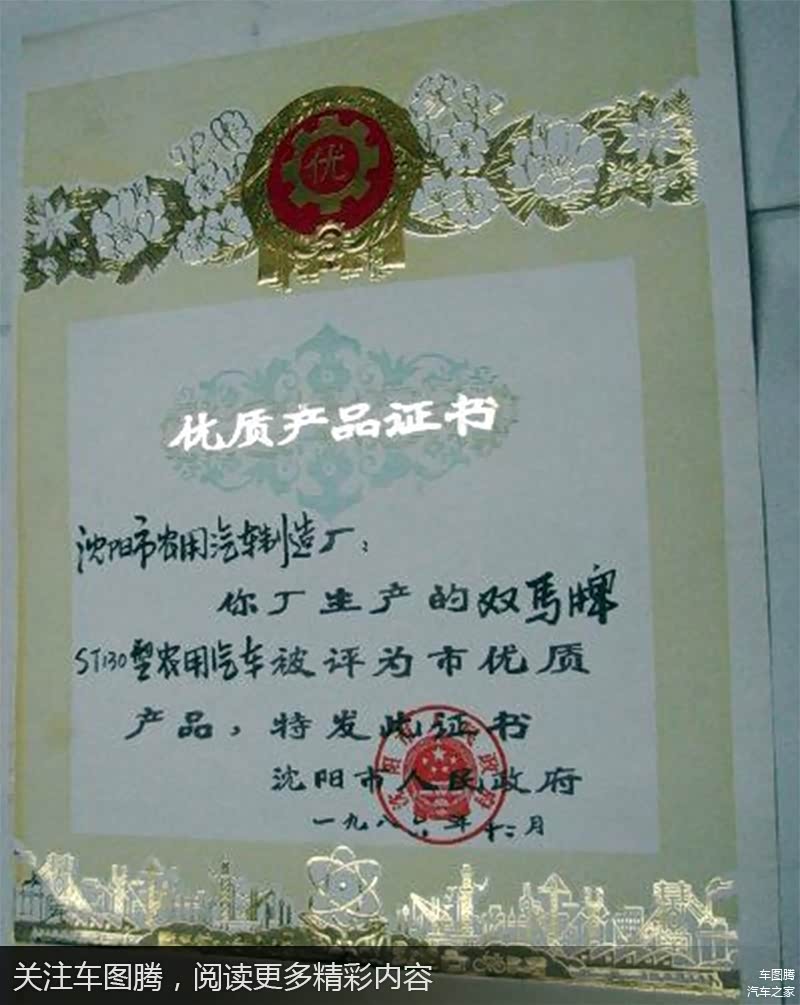 优
优质产品证书
沈阳市农用汽车制造厂：
你厂生产的双马牌
ST130型农用汽车被评为市优质
产品，特发此证书
沈阳市人民政府
一九八 年十二月
关注车图腾，阅读更多精彩内容
车图腾
汽车之家